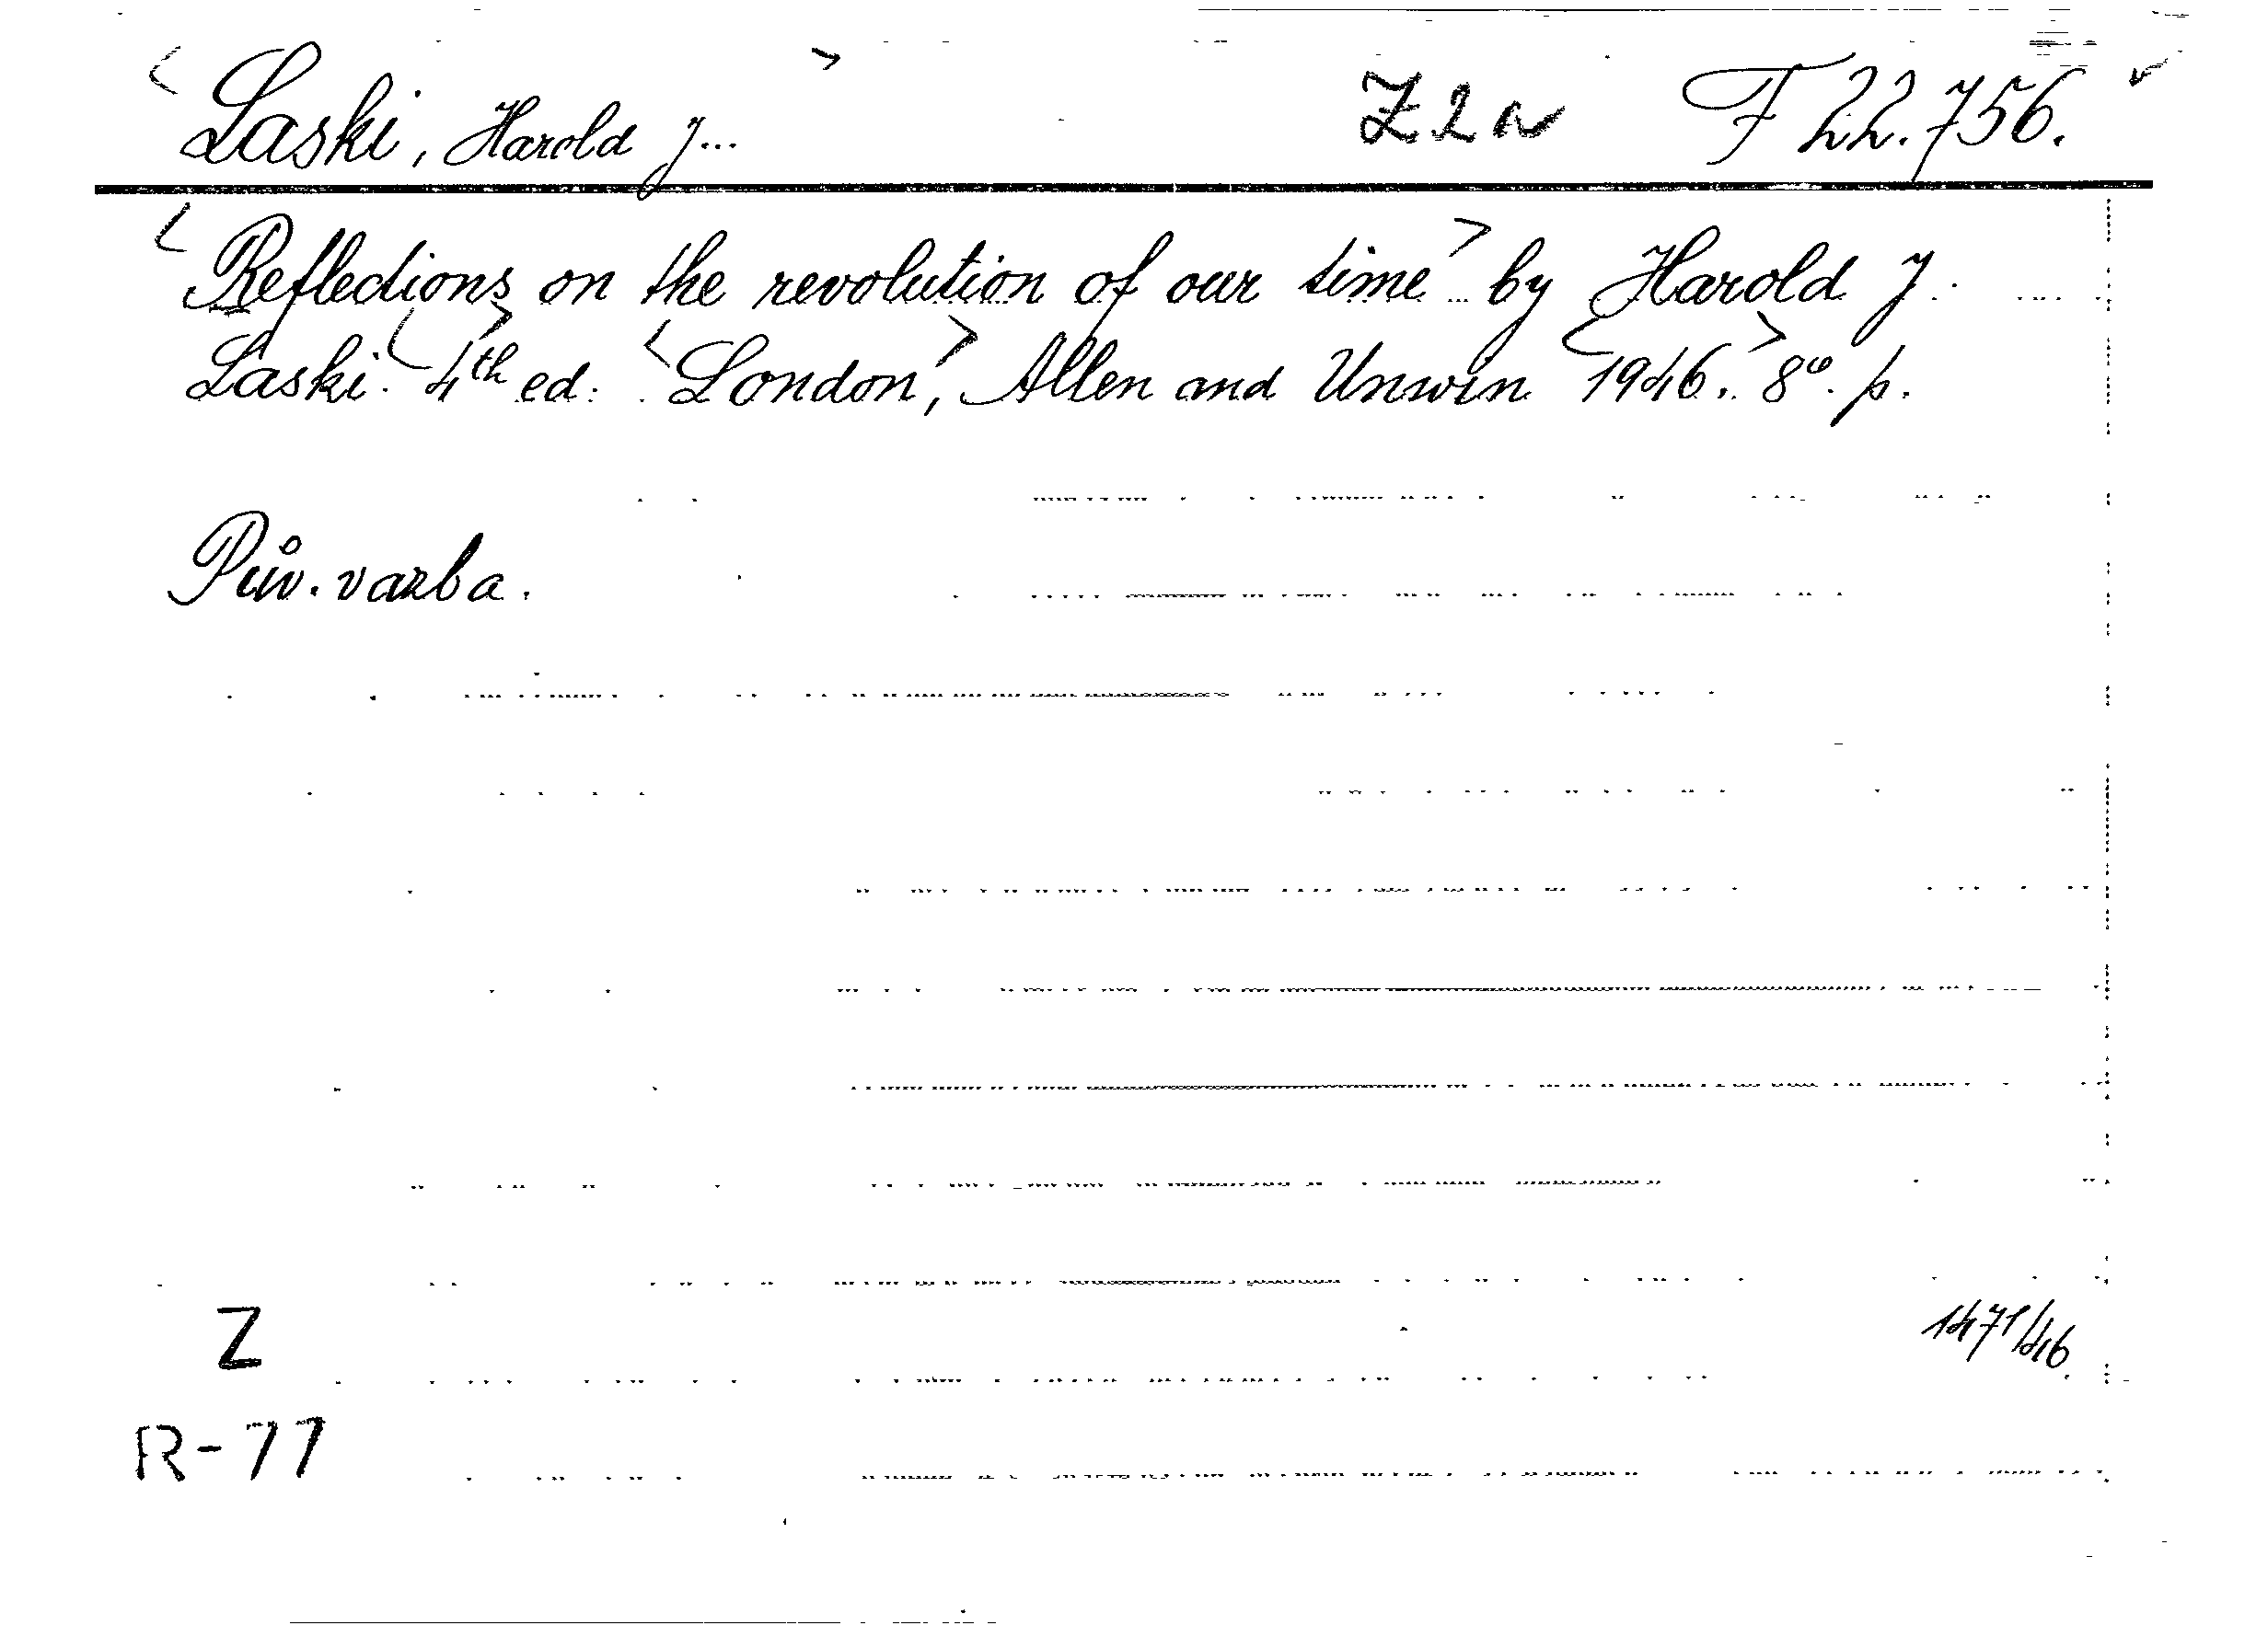 < Laski, Harold J... > Z2N F 22.756. v
< Reflections on the revolution of our time > by Harold J.
Laski. < 4th > ed. < London >, Allen and Unwin < 1946. > 8°. p.
Pův. vazba.
Z
1471/46.
R-77